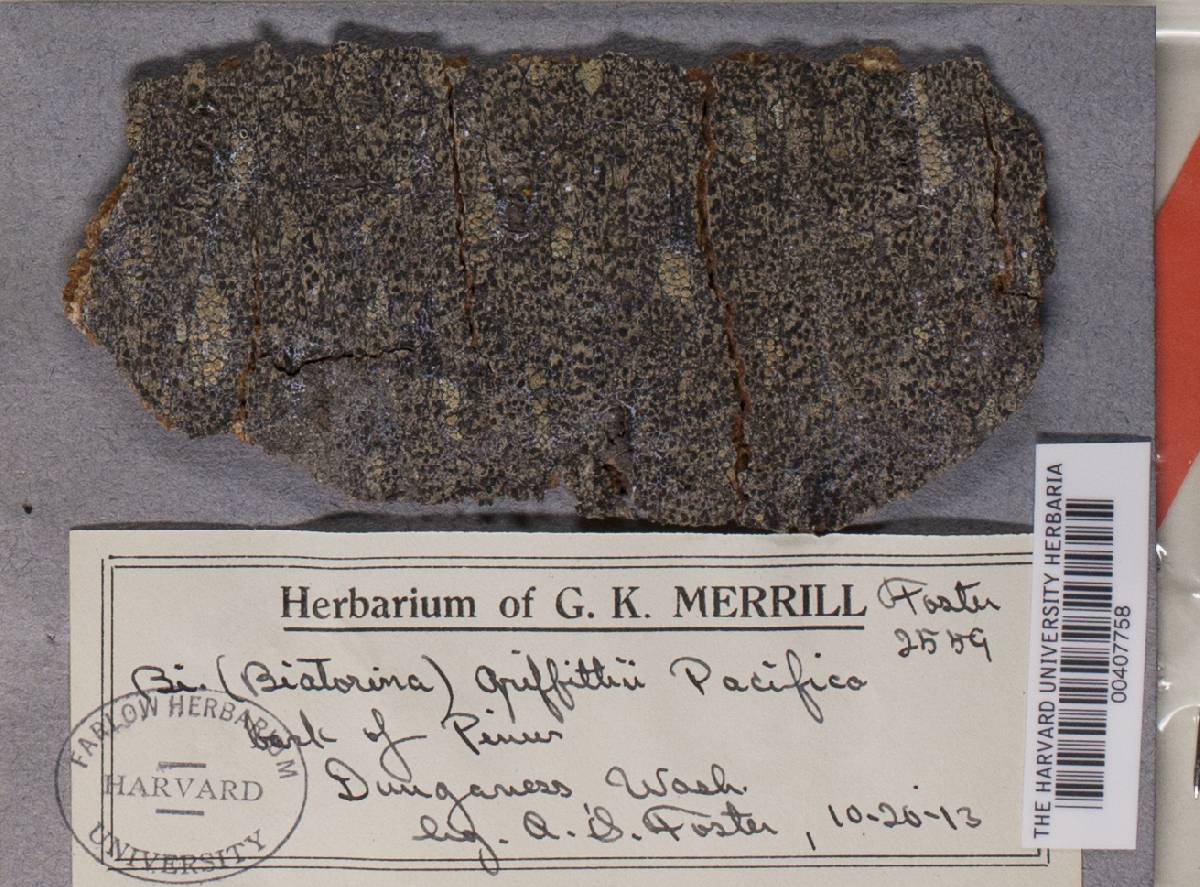 Herbarium of G. K. MERRILL
Foster
2559
Bi. (Biatorina) Griffithii Pacifica
bark of Pinus
Dungeness, Wash.
leg. A. S. Foster, 10-20-13
FARLOW HERBARIUM
HARVARD
UNIVERSITY
THE HARVARD UNIVERSITY HERBARIA
00407758